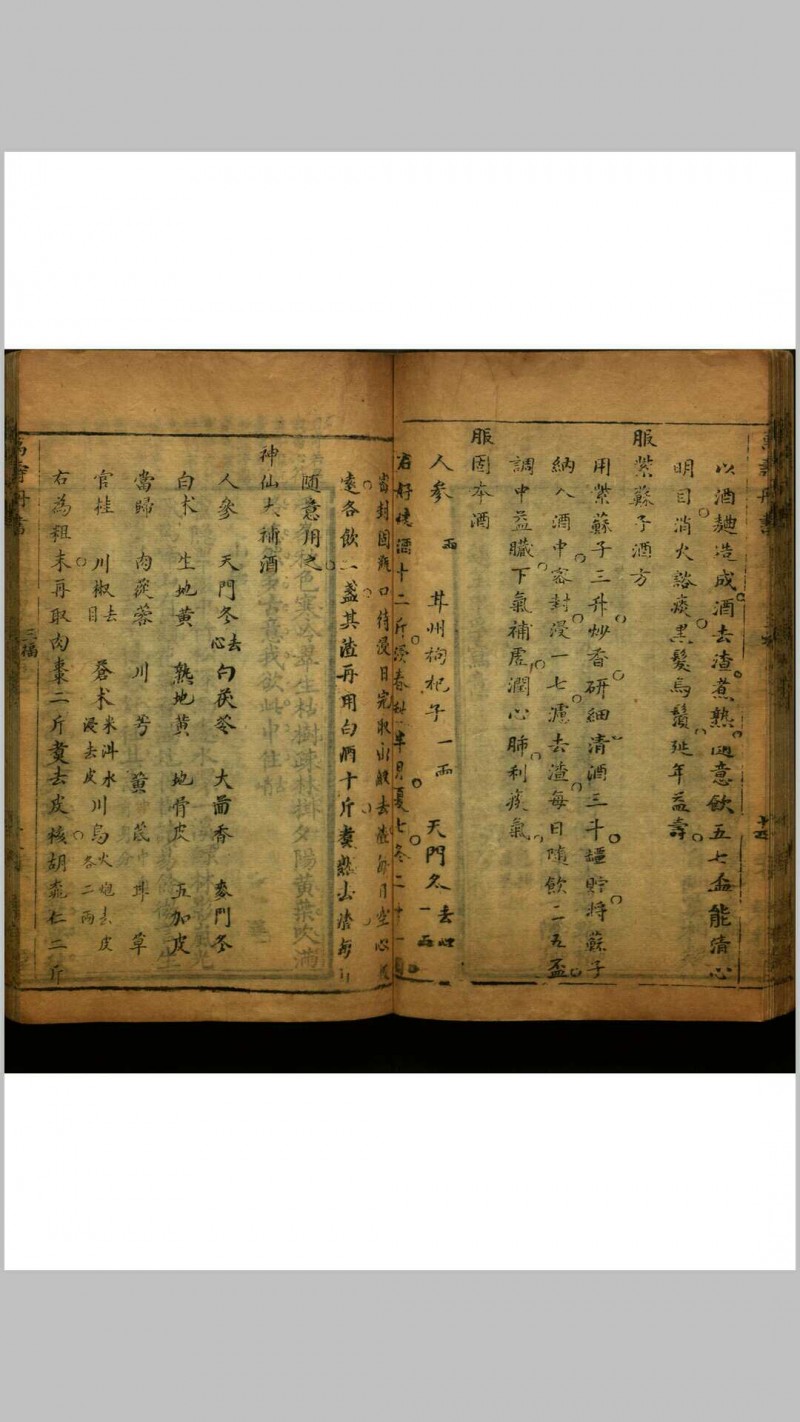 以酒麯造成酒去渣煮熟隨意飲五七盃能清心
明目消火豁痰黑髮烏鬚延年益壽
服紫蘇子酒方
用紫蘇子三升炒香研細清酒三斗罈貯將蘇子
納入酒中密封浸一七濾去渣每日隨飲二五盃
調中益臟下氣補虛潤心肺利痰氣
服固本酒
人參一兩 甘州枸杞子一兩 天門冬去心一兩
右好燒酒十二斤浸春秋半月夏七冬二十一日
密封固瓶口待浸日完取出
去渣每日空心
遠各飲一盞其渣再用白酒十斤煮熟去渣每日
隨意用之
神仙大補酒
人參 天門冬去心 白茯苓 大茴香 麥門冬
白朮 生地黃 熟地黃 地骨皮 五加皮
當歸 肉蓯蓉 川芎 黃芪 甘草
官桂 川椒去目 蒼朮米泔水浸去皮 川烏火炮去皮各二兩
右為粗末再取肉棗二斤煑去皮核胡桃仁二斤
三福